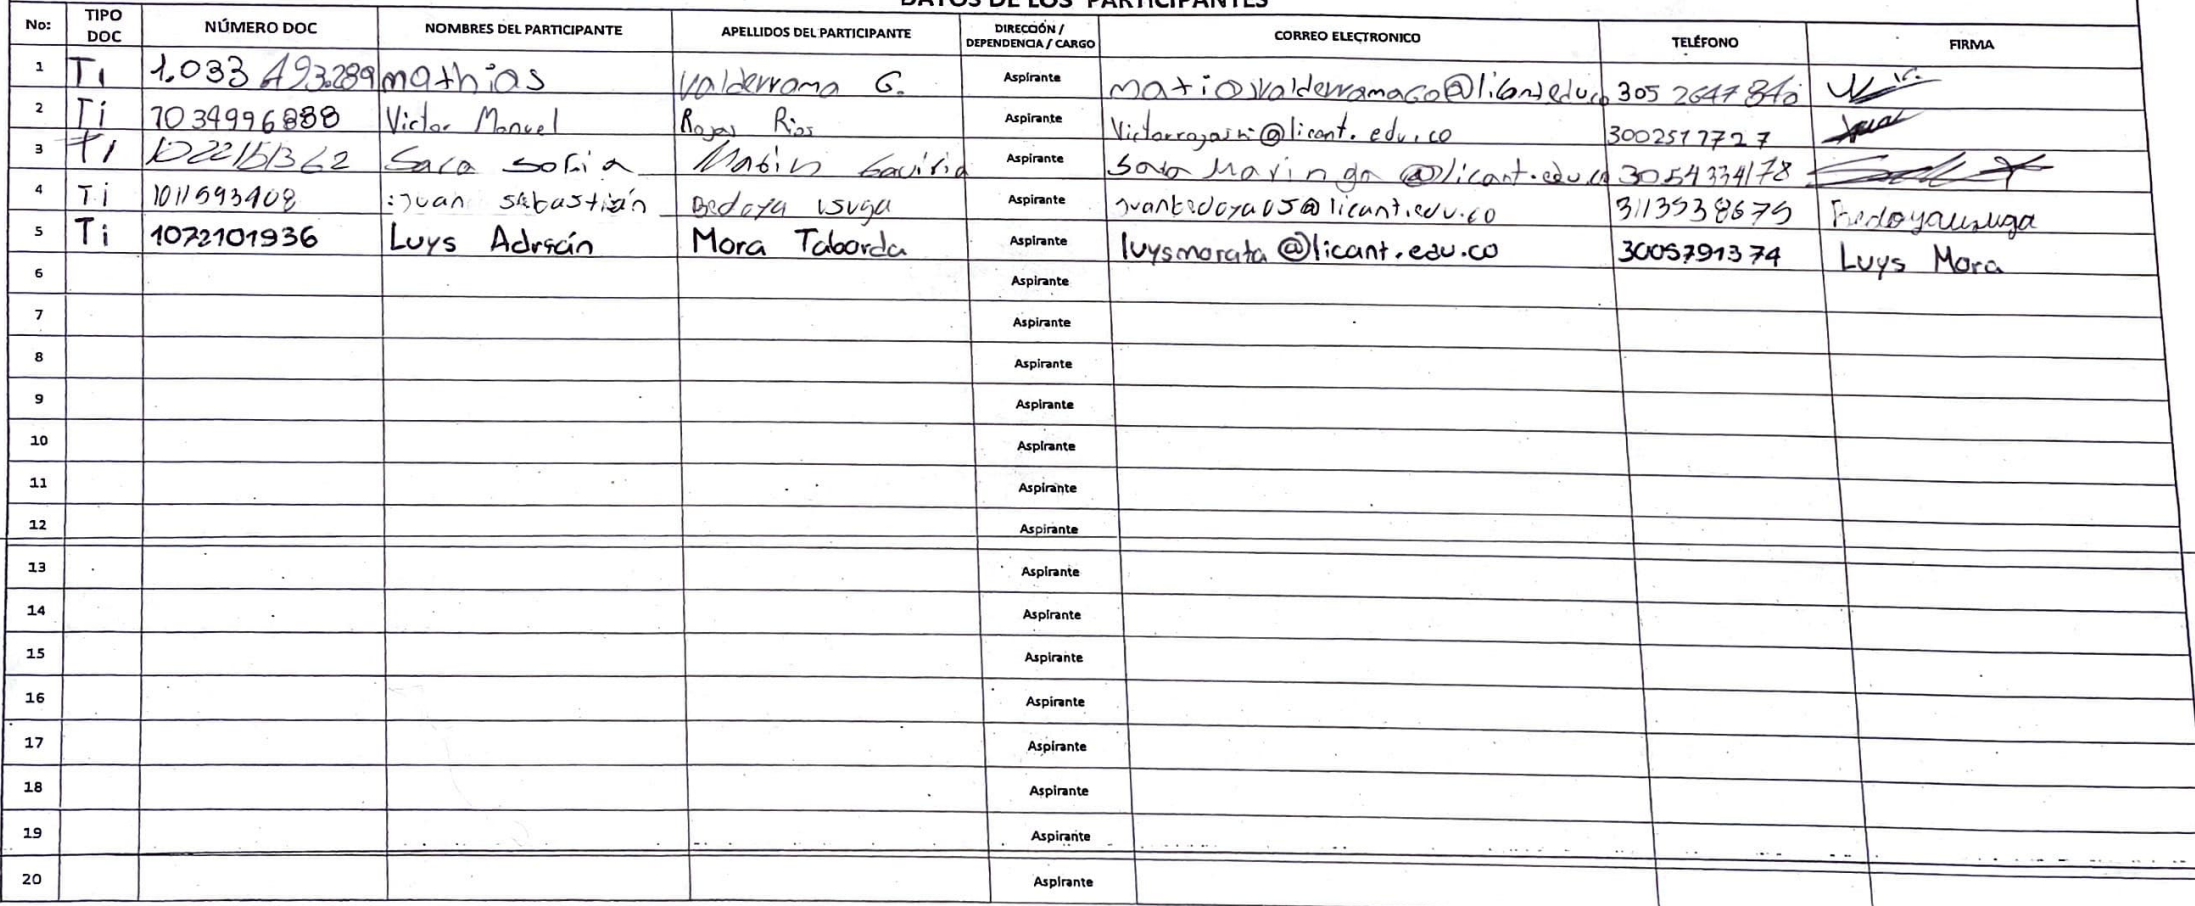 DATOS DE LOS PARTICIPANTES
No: TIPO DOC NÚMERO DOC NOMBRES DEL PARTICIPANTE APELLIDOS DEL PARTICIPANTE DIRECCIÓN / DEPENDENCIA / CARGO CORREO ELECTRONICO TELÉFONO FIRMA
1 Ti 1.033 493.289 mathias Valderrama G. Aspirante 305 2647840
2 Ti 1034996888 Victor Manuel Rojas Rios Aspirante 3002517727
3 Ti 1022151362 Sara sofia Marin Gaviria Aspirante 3054334178
4 Ti 1011593408 Juan sebastián Bedoya usuga Aspirante juanbedoyaus@licant.edu.co 3113938675 Bedoyausuga
5 Ti 1072101936 Luys Adrián Mora Taborda Aspirante luysmorata@licant.edu.co 3005791374 Luys Mora
6 Aspirante
7 Aspirante
8 Aspirante
9 Aspirante
10 Aspirante
11 Aspirante
12 Aspirante
13 Aspirante
14 Aspirante
15 Aspirante
16 Aspirante
17 Aspirante
18 Aspirante
19 Aspirante
20 Aspirante